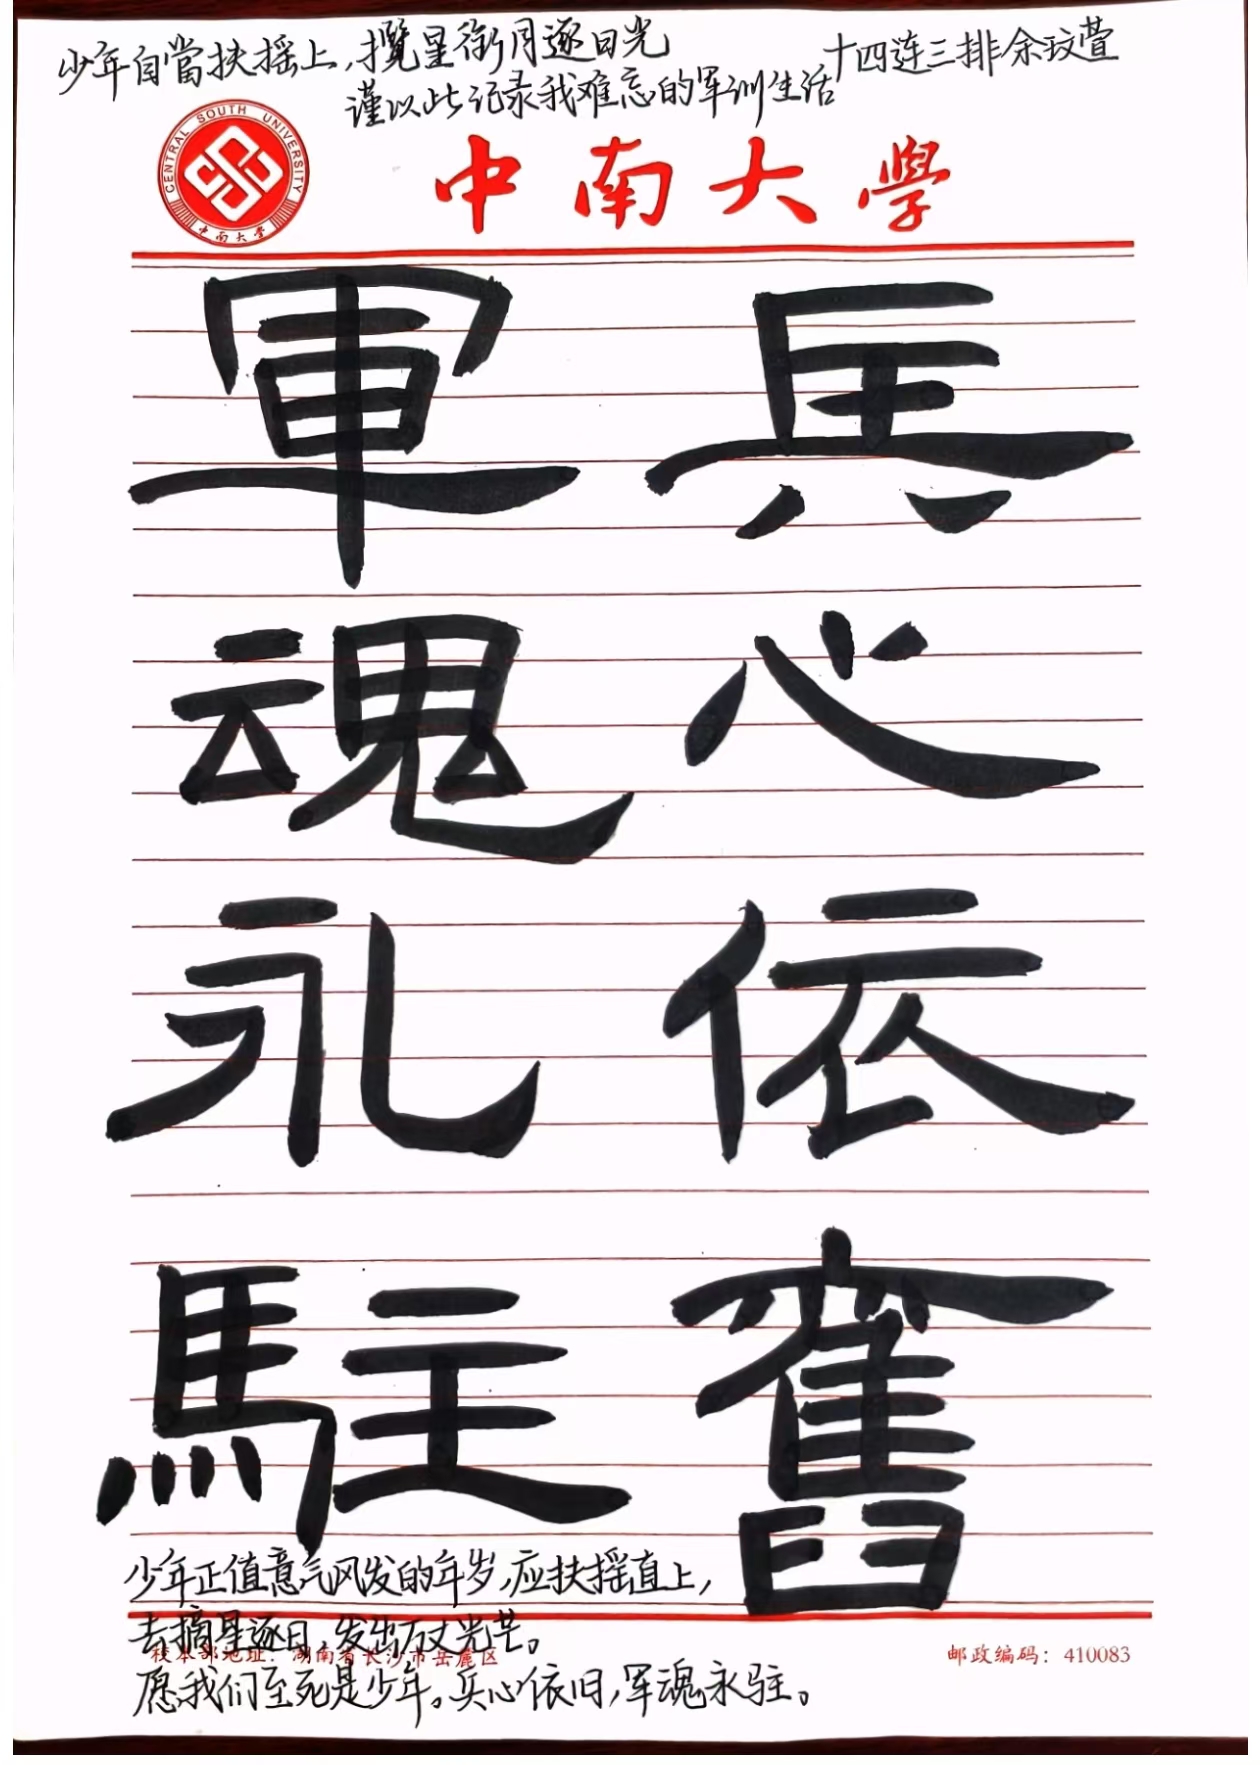 少年自當扶摇上，揽星衔月逐日光
十四连三排余玟萱
谨以此记录我难忘的军训生活
CENTRAL SOUTH UNIVERSITY
中南大學
中南大學
兵心依舊
軍魂永駐
少年正值意气风发的年岁，应扶摇直上，
去摘星逐日，发出万丈光芒。
校本部地址：湖南省长沙市岳麓区
邮政编码：410083
愿我们至死是少年。兵心依旧，军魂永驻。